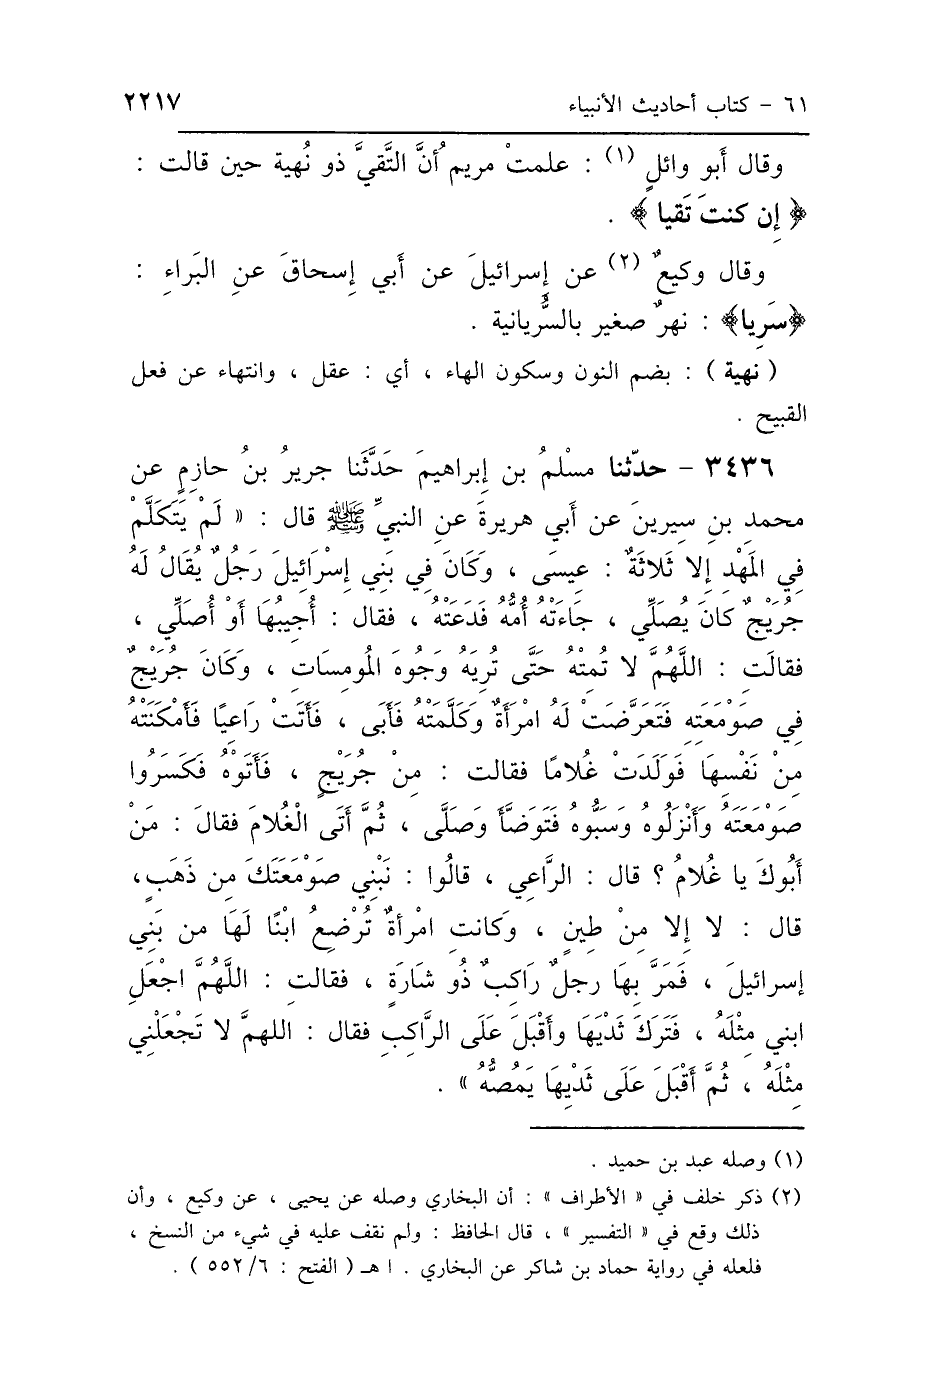 ٦١ - كتاب أحاديث الأنبياء ٢٢١٧
وقال أَبو وائلٍ (١) : علمتْ مريم أنَّ التَّقيَّ ذو نُهية حين قالت :
﴿ إِن كنتَ تَقيا ﴾ .
وقال وكيعٌ (٢) عن إِسرائيلَ عن أَبي إِسحاقَ عنِ البَراءِ :
﴿سَرِيا﴾ : نهرٌ صغير بالسُّريانية .
( نهية ) : بضم النون وسكون الهاء ، أي : عقل ، وانتهاء عن فعل
القبيح .
٣٤٣٦ - حدّثنا مسْلمُ بن إِبراهيمَ حَدَّثَنا جريرُ بنُ حازمٍ عن
محمدِ بنِ سيرينَ عن أَبي هريرةَ عنِ النبيِّ ﷺ قال : « لَمْ يَتَكَلَّمْ
فِي المَهْدِ إِلا ثَلاثَةٌ : عِيسَى ، وكَانَ فِي بَنِي إِسْرَائِيلَ رَجُلٌ يُقَالُ لَهُ
جُرَيْجٌ كانَ يُصَلِّي ، جَاءَتْهُ أُمُّهُ فَدَعَتْهُ ، فقال : أُجِيبُهَا أَوْ أُصَلِّي ،
فقالَت : اللَّهُمَّ لا تُمِتْهُ حَتَّى تُرِيَهُ وَجُوهَ المُومِسَاتِ ، وَكَانَ جُرَيْجٌ
فِي صَوْمَعَتِهِ فَتَعَرَّضَتْ لَهُ امْرَأَةٌ وَكَلَّمَتْهُ فَأَبَى ، فَأَتَتْ رَاعِيًا فَأَمْكَنَتْهُ
مِنْ نَفْسِهَا فَوَلَدَتْ غُلامًا فقالت : مِنْ جُرَيْجٍ ، فَأَتَوْهُ فَكَسَرُوا
صَوْمَعَتَهُ وَأَنْزَلُوهُ وَسَبُّوهُ فَتَوَضَّأَ وَصَلَّى ، ثُمَّ أَتَى الْغُلامَ فقالَ : مَنْ
أَبُوكَ يا غُلامُ ؟ قال : الرَّاعِي ، قالُوا : نَبْنِي صَوْمَعَتَكَ مِن ذَهَبٍ،
قال : لا إِلا مِنْ طِينٍ ، وَكانتِ امْرأةٌ تُرْضِعُ ابْنًا لَهَا من بَنِي
إسرائيلَ ، فَمَرَّ بِهَا رجلٌ رَاكِبٌ ذُو شَارَةٍ ، فقالت : اللَّهُمَّ اجْعَلِ
ابني مِثْلَهُ ، فَتَرَكَ ثَدْيَهَا وأَقْبَلَ عَلَى الرَّاكِبِ فقال : اللهمَّ لا تَجْعَلْنِي
مِثْلَهُ ، ثُمَّ أَقْبَلَ عَلَى ثَدْيِهَا يَمُصُّهُ » .
(١) وصله عبد بن حميد .
(٢) ذكر خلف في « الأطراف » : أن البخاري وصله عن يحيى ، عن وكيع ، وأن
ذلك وقع في « التفسير » ، قال الحافظ : ولم نقف عليه في شيء من النسخ ،
فلعله في رواية حماد بن شاكر عن البخاري . ا هـ ( الفتح : ٦/ ٥٥٢ ) .